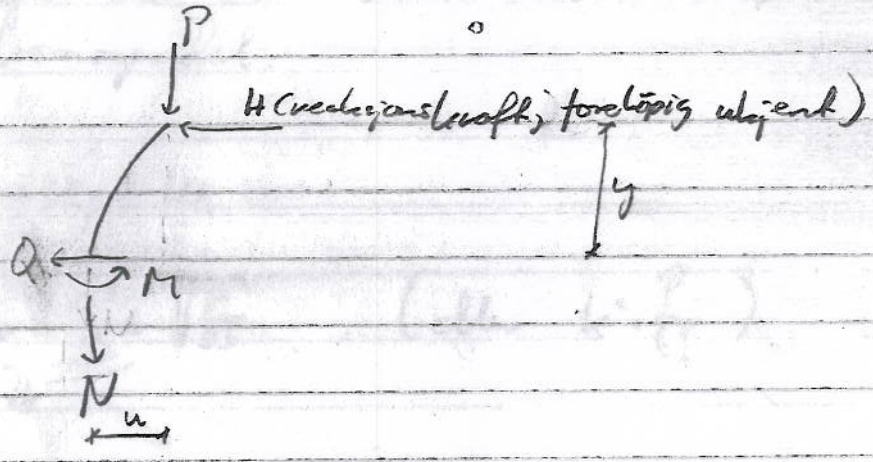 P
H (reaksjonskraft; foreløpig ukjent)
y
Q
M
N
u